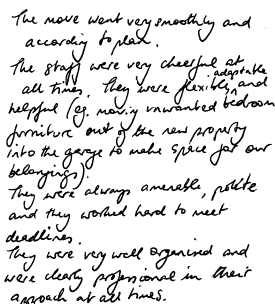 The move went very smoothly and
according to plan.
The staff were very cheerful at
all times. They were flexible, adaptable and
helpful (eg. moving unwanted bedroom
furniture out of the new property
into the garage to make space for our
belongings).
They were always amenable, polite
and they worked hard to meet
deadlines.
They were very well organised and
were clearly professional in their
approach at all times.